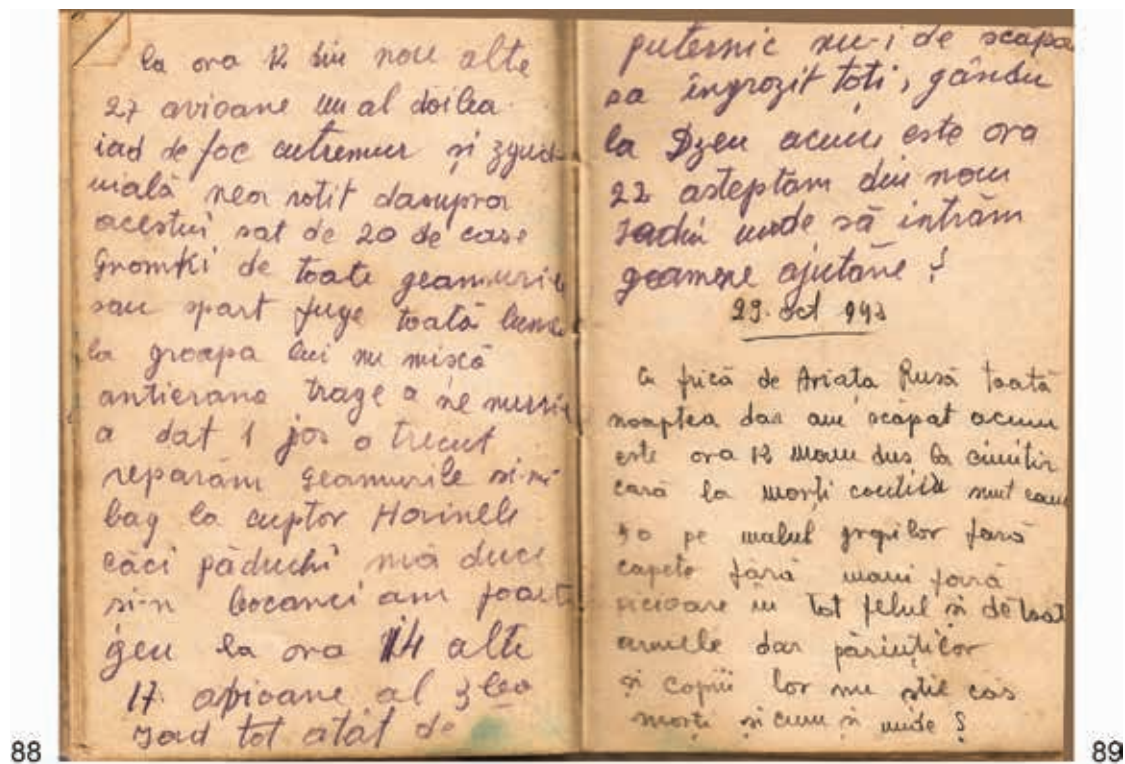 la ora 12 din nou alte
27 avioane un al doilea
iad de foc cutremur și zgud
uială neo rotit dasupra
acestui sat de 20 de case
Gromki de toate geamurile
sau spart fuge toată lume
la groapa lui nu mișcă
antieriana trage a
a dat 1 jos o trecut
reparăm geamurile si-mi
bag la cuptor Hainele
căci păduchi mă duce
si-n bocanci am foarte
geu la ora 14 alte
17 avioane al 3 lea
Jad tot atât de
88
puternic nu-i de scapa
sa îngrozit toti, gându
la Dzeu acum este ora
22 asteptam din nou
Jadu unde să intrăm
geamene ajutăne !
29. oct 943
Cu frică de Ariața Rusă toată
noaptea dar am scapat acum
este ora 12 mam dus la cimitir
cară la morți cu sunt cam
50 pe malul gropilor fară
capete fără maini fară
picioare in tot felul și de toate
armele dar păriuților
și copiii lor nu știe cos
morți și cum și unde ?
89